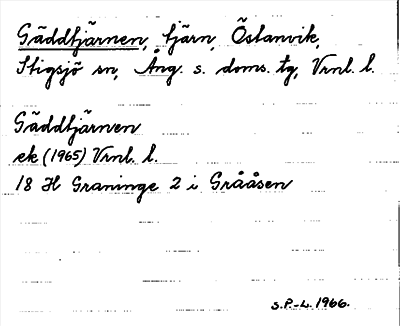 Gäddtjärnen, tjärn, Östanvik,
Stigsjö sn, Ång. s. doms. tg, Vrnl. l.
Gäddtjärnen
ek (1965) Vrnl. l.
18 H Graninge 2 i Grååsen
S.P.-L. 1966.